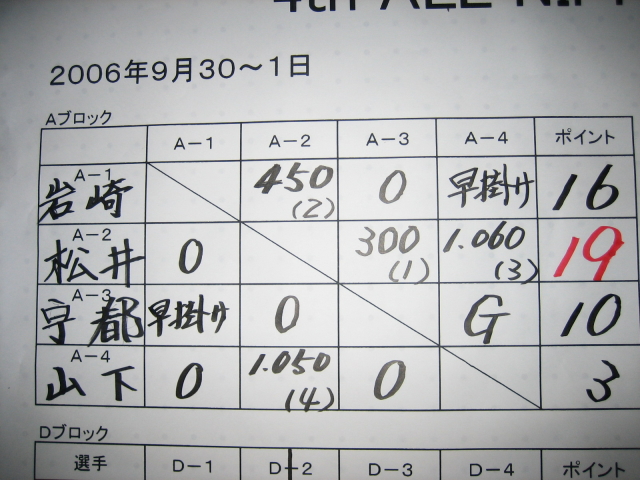 4th ALL
2006年9月30～1日
Aブロック
A－1 A－2 A－3 A－4 ポイント
A－1
岩崎 450 (2) 0 早掛け 16
A－2
松井 0 300 (1) 1.060 (3) 19
A－3
宇都 早掛け 0 G 10
A－4
山下 0 1.050 (4) 0 3
Dブロック
選手 D－1 D－2 D－3 D－4 ポイント